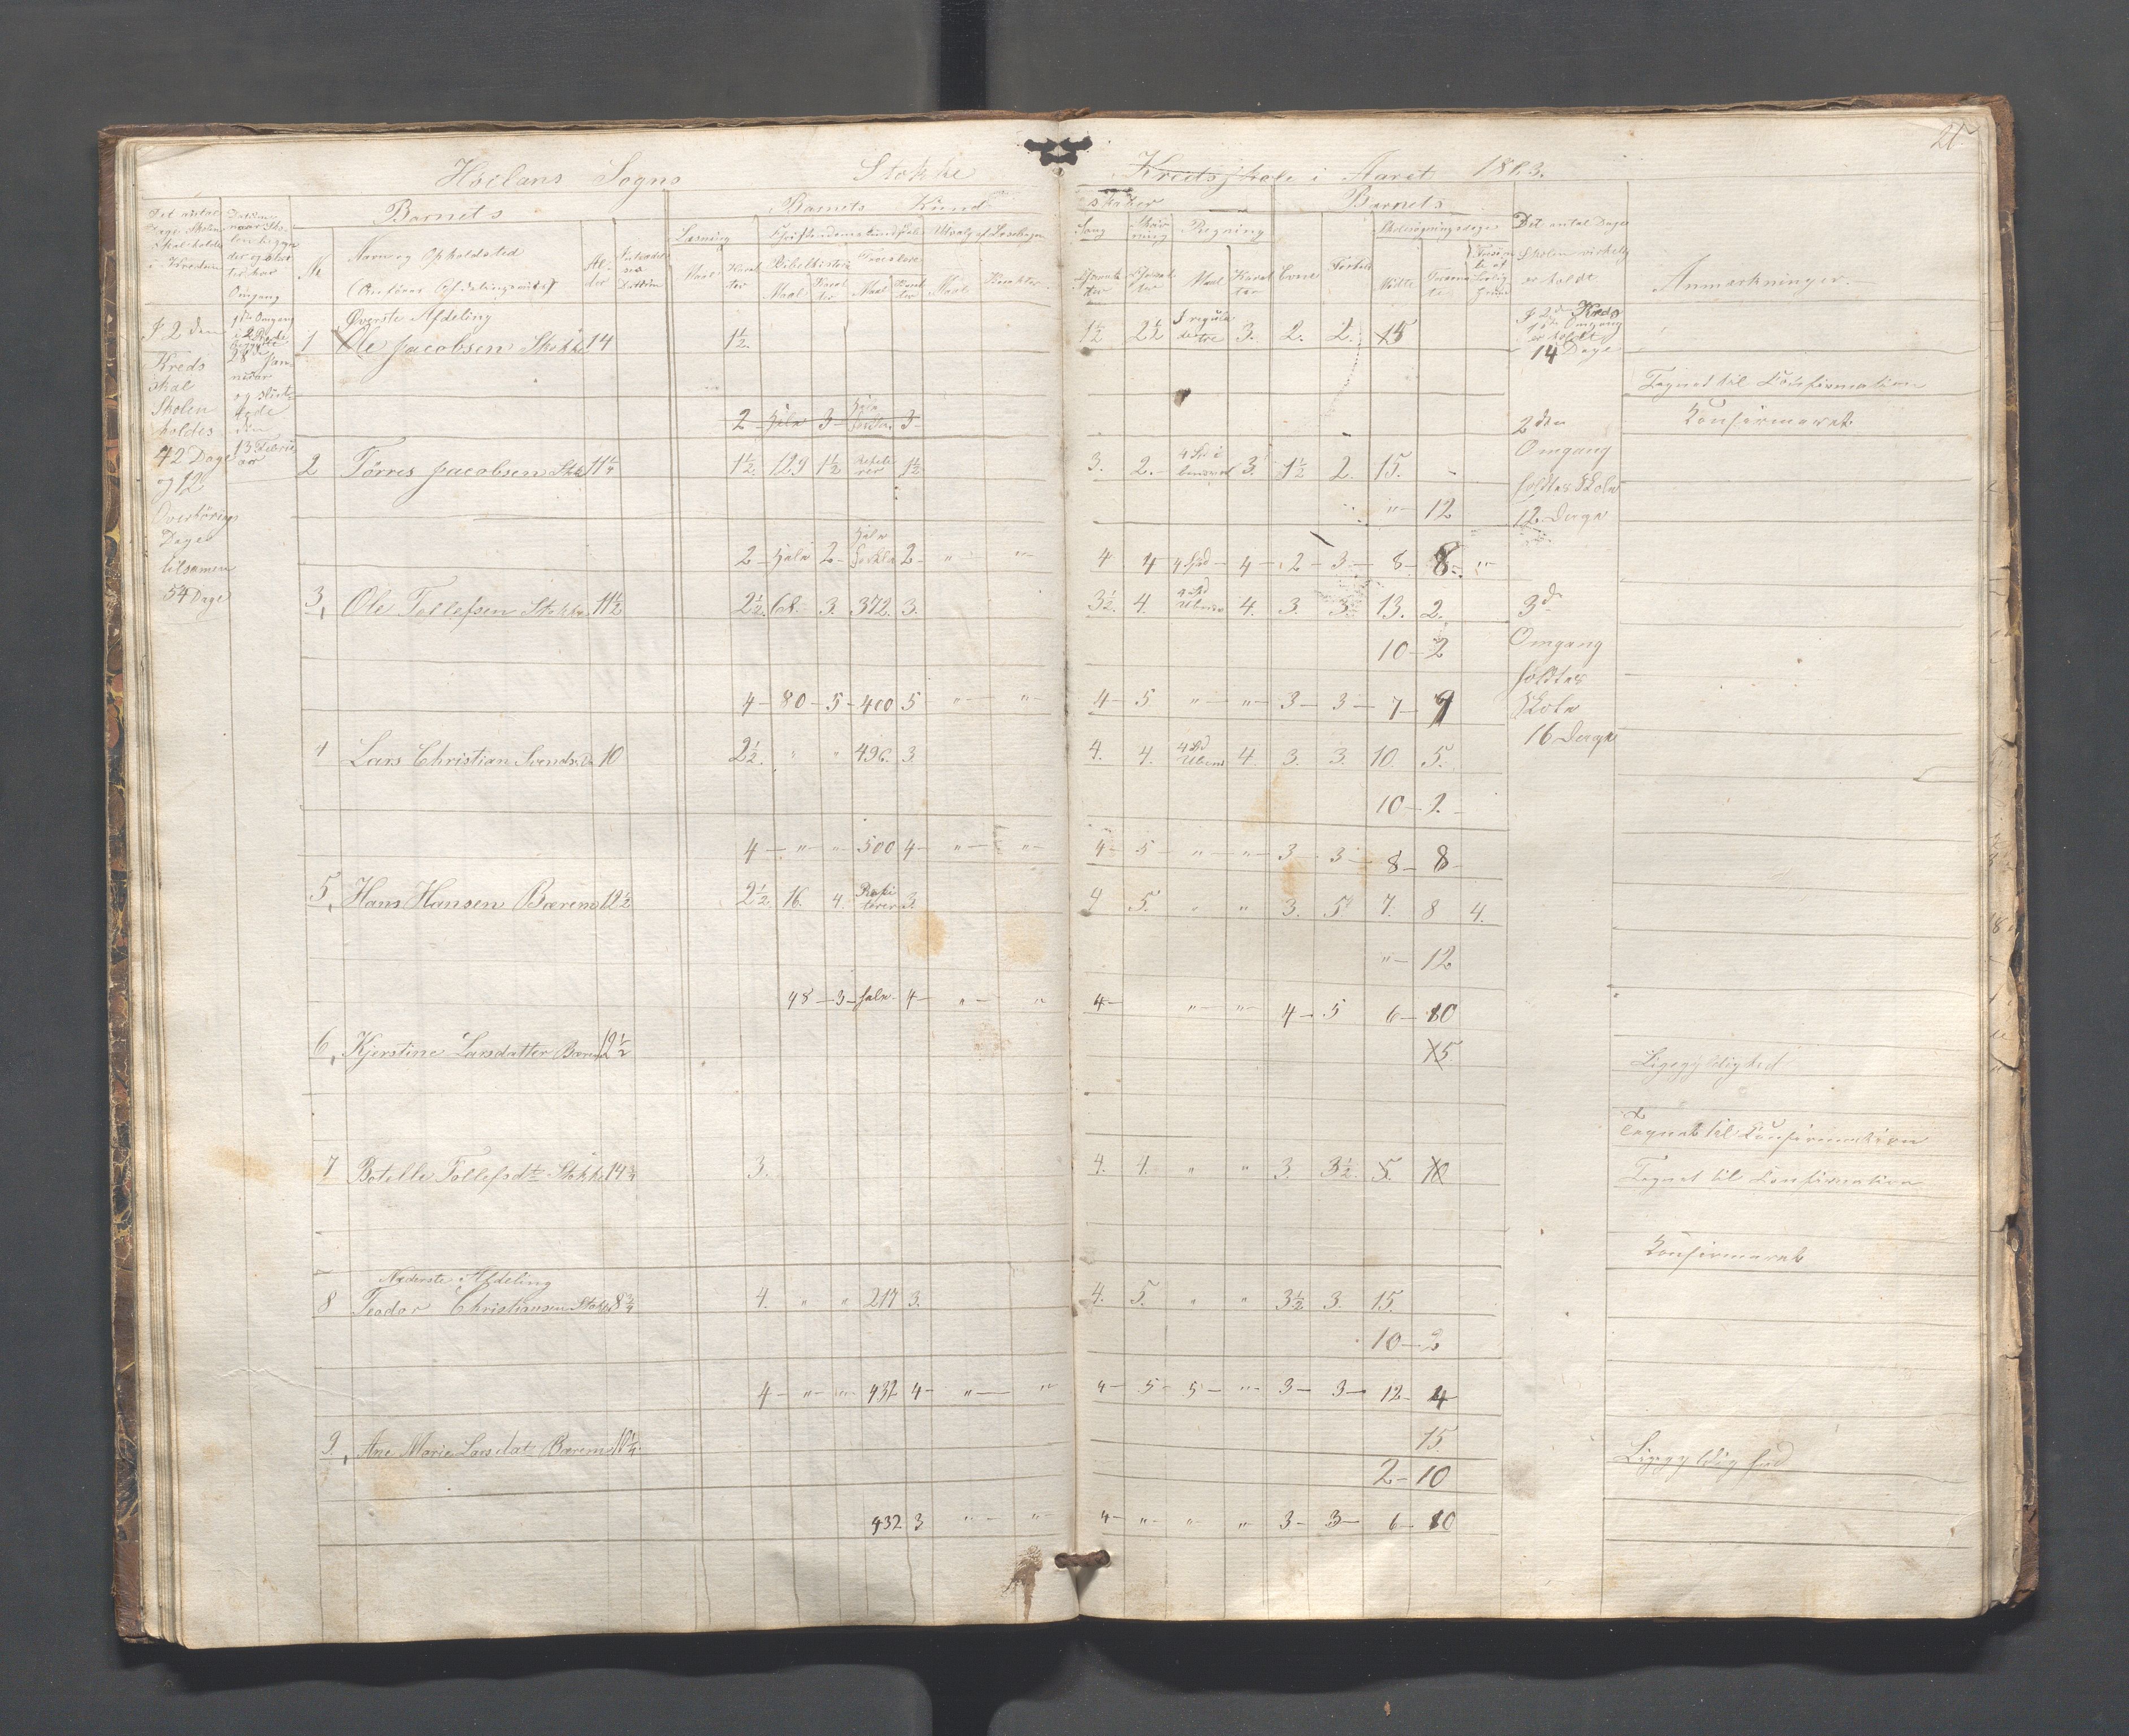 21
Höilans Sogns Stokke Kredsskole i Aaret 1863.
Barnets
Barnets Kund
skaber
Barnets
Det antal Dage Skolen skal holdes i Kredsen
Datum, naar Skolen begynder og slutter hver Omgang
№
Navn og Opholdssted
(Anføres Afdelingsviis)
Alder
Indtrædelses Datum
Læsning
Maal
Karakter
Christendomskundskab
Bibelhistorie
Maal
Karakter
Troeslære
Maal
Karakter
Udvalg af Læsebogen
Maal
Karakter
Sang
Karakter
Skrivning
Karakter
Regning
Maal
Karakter
Evne
Forhold
Skolesøgningsdage
Mødte
Forsømte
Det antal Dage Skolen virkelig er holdt
Anmærkninger.
I 2den
Kreds
skal
Skolen
holdes
42 Dage
og 12
Dage
tilsamen
54 Dage
1ste Omgang
28de Jan
nuar
og slut
tede
den
13 Februar
Øverste Afdeling
1 Ole Jacobsen Stokke 14 1½ 1½ 2½ 3. 2. 2. 15
I 2den Kreds
1ste Omgang
er holdt
14 Dage
Tegnet til Confirmation
2 3 3
Konfirmeret
2den
Omgang
holdtes Skole
12 Dage
2 Törres Jacobsen Stokke 11¼ 1½ 129 1½ Repeterer 1½ 3. 2. 3. 1½ 2. 15.
" 12
2 hele 2 hele 2 " " 4 4 4 2 3 8 8 "
3 Ole Tollefsen Stokke 11½ 2½ 68. 3. 372. 3. 3½ 4. 4. 3. 3. 13. 2.
10 2
3d
Omgang
holdtes
Skole
16 Dage
4 80 5 400 5 " " 4 5 " " 3 3 7 9
4 Lars Christian Svends. 10 2½ " " 496. 3 4. 4. 4. 3. 3. 10. 5.
10 2
4 " " 500 4 " " 4 5 " " 3 3 8 8
5 Hans Hansen Bærem 12½ 2½ 16. 4. Repeterer 3. 4 5. " " 3. 5 7. 8 4.
" 12
48 3 hele 4 " " 4 " " 4 5 6 10
6 Kjerstine Larsdatter Bærem 12½ 15
Ligegyldighed
Tegnet til Konfirmation
7 Botelle Tollefsdt Stokke 14¾ 3. 4. 4. " " 3. 3½ 5. 10
Tegnet til Confirmation
Konfirmeret
Nederste Afdeling
8 Teodor Christiansen Stokke 8¾ 4. " " 217 3. 4. 5. " " 3½ 3. 15.
10 2
4 " " 432 4 " " 4 5 5 " 3 3 12 4
9. Ane Marie Larsdat Bærem 10¼ 15.
Ligegyldighed
2 10
432 3 " " 4 " " " 3 3 6 10